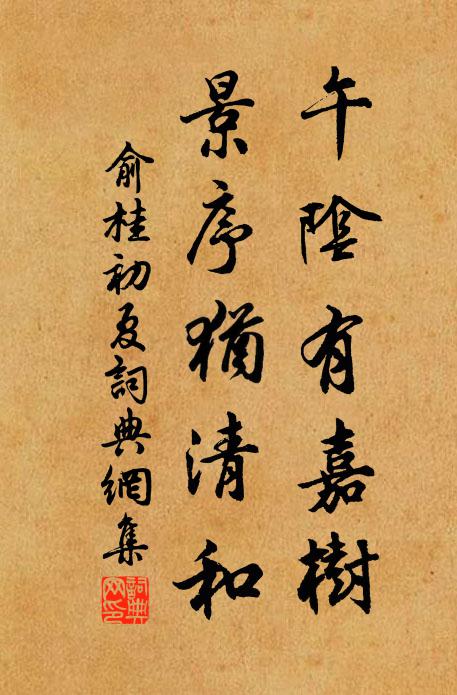 午陰有嘉樹
景序猶清和
俞桂初夏詞典網集
詞典網印